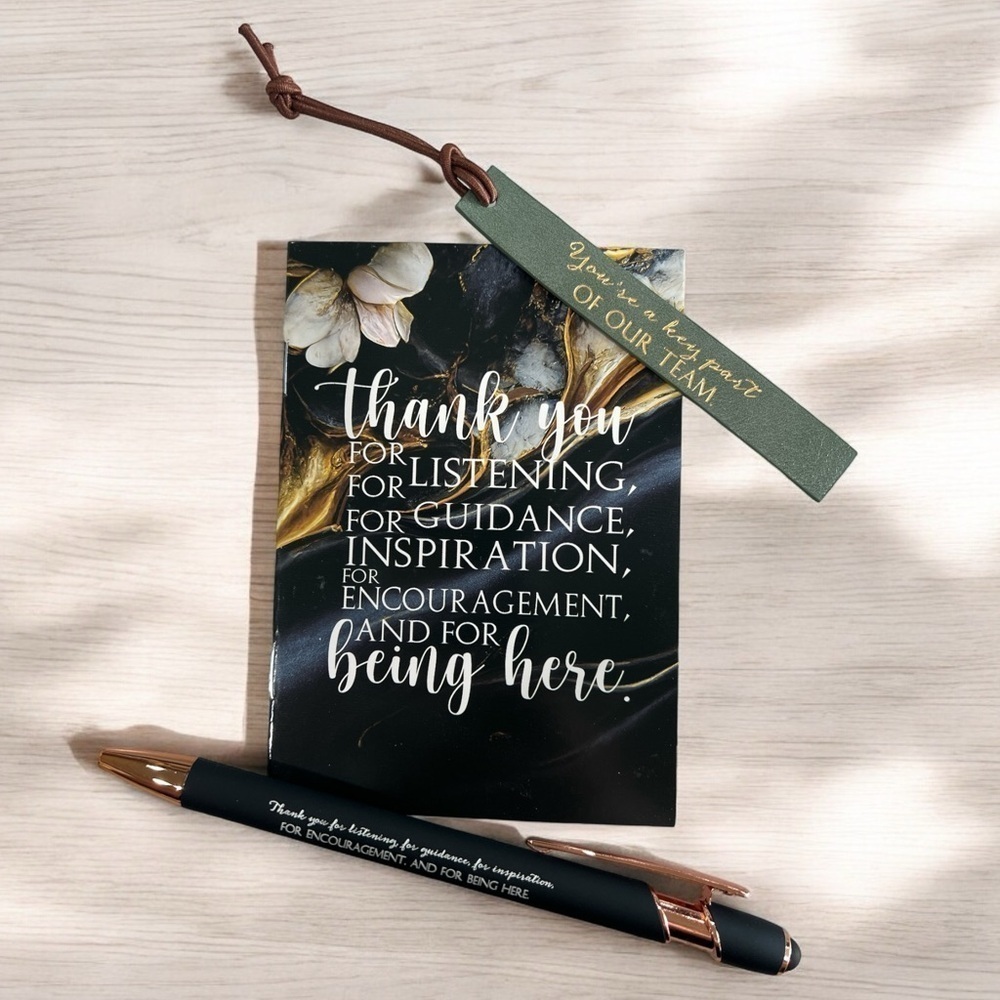 You're a key part
OF OUR TEAM.
thank you
FOR LISTENING,
FOR
FOR GUIDANCE,
INSPIRATION,
FOR
ENCOURAGEMENT,
AND FOR
being here.
Thank you for listening for guidance, for inspiration,
FOR ENCOURAGEMENT, AND FOR BEING HERE.